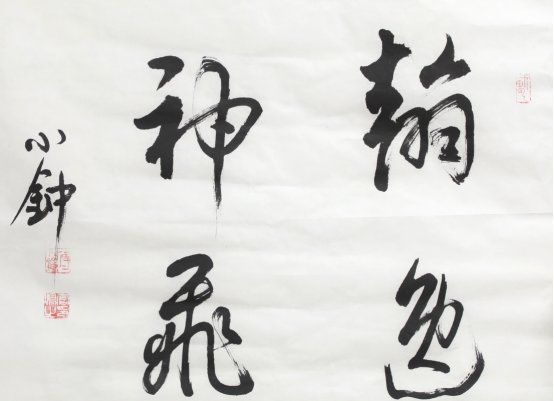 翰逸
神飛
小鈡